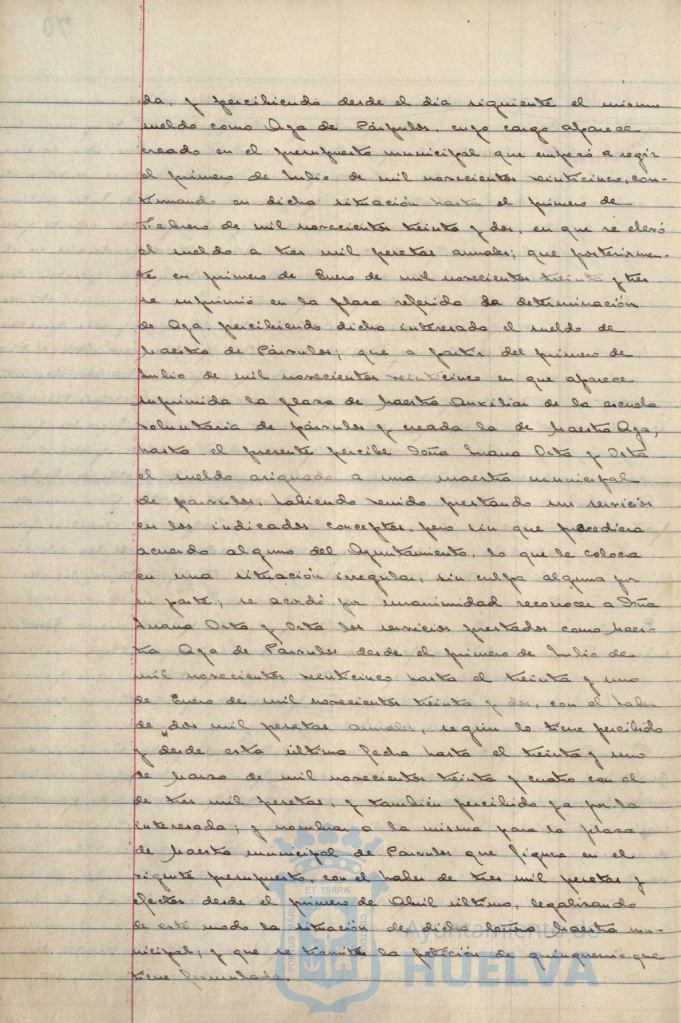 da, y percibiendo desde el dia siguiente el mismo
sueldo como Aya de Párvulos, cuyo cargo aparece
creado en el presupuesto municipal que empezó a regir
el primero de Julio de mil novecientos veinticinco, con-
tinuando en dicha situación hasta el primero de
Febrero de mil novecientos treinta y dos, en que se elevó
el sueldo a tres mil pesetas anuales; que posteriormen-
te en primero de Enero de mil novecientos treinta y tres
se suprimió en la plaza referida la determinación
de Aya, percibiendo dicha interesada el sueldo de
Maestra de Párvulos; que a partir del primero de
Julio de mil novecientos veinticinco en que aparece
suprimida la plaza de Maestra Auxiliar de la escuela
voluntaria de párvulos y creada la de Maestra Aya,
hasta el presente percibe Doña Juana Orta y Orta
el sueldo asignado a una maestra municipal
de párvulos, habiendo venido prestando sus servicios
en los indicados conceptos, pero sin que precediera
acuerdo alguno del Ayuntamiento, lo que le coloca
en una situación irregular, sin culpa alguna por
su parte; se acordó por unanimidad reconocer a Doña
Juana Orta y Orta los servicios prestados como Maes-
tra Aya de Párvulos desde el primero de Julio de
mil novecientos veinticinco hasta el treinta y uno
de Enero de mil novecientos treinta y dos, con el haber
de dos mil pesetas anuales, según lo tiene percibido
y desde esta última fecha hasta el treinta y uno
de Marzo de mil novecientos treinta y cuatro con el
de tres mil pesetas, y también percibido ya por la
interesada; y nombrar a la misma para la plaza
de Maestra municipal de Párvulos que figura en el
vigente presupuesto, con el haber de tres mil pesetas y
efectos desde el primero de Abril último, legalizando
de este modo la situación de dicha señora Maestra mu-
nicipal; y que se tramite la petición de quinquenio que
tiene formulada.
Ayuntamiento de
HUELVA